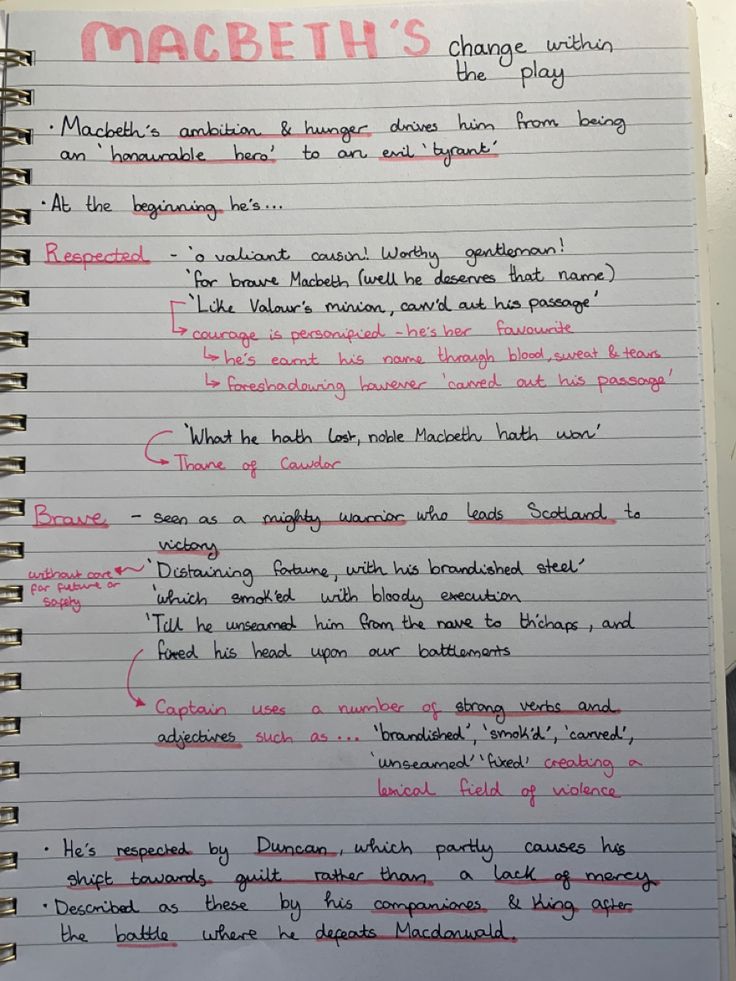 MACBETH'S change within
the play
• Macbeth's ambition & hunger drives him from being
an 'honourable hero' to an evil 'tyrant'
• At the beginning he's...
Respected - 'o valiant cousin! Worthy gentleman!
'for brave Macbeth (well he deserves that name)
'Like Valour's minion, carv'd out his passage'
↳ courage is personified - he's her favourite
↳ he's earnt his name through blood, sweat & tears
↳ foreshadowing however 'carved out his passage'
'What he hath lost, noble Macbeth hath won'
Thane of Cawdor
Brave - seen as a mighty warrior who leads Scotland to
victory
'Distaining fortune, with his brandished steel'
without care
for future or
safety
'which smok'ed with bloody execution
'Till he unseamed him from the nave to th'chaps, and
fixed his head upon our battlements
Captain uses a number of strong verbs and
adjectives such as... 'brandished', 'smok'd', 'carved',
'unseamed' 'fixed' creating a
lexical field of violence
• He's respected by Duncan, which partly causes his
shift towards guilt rather than a lack of mercy
• Described as these by his companiones & King after
the battle where he defeats Macdonwald.